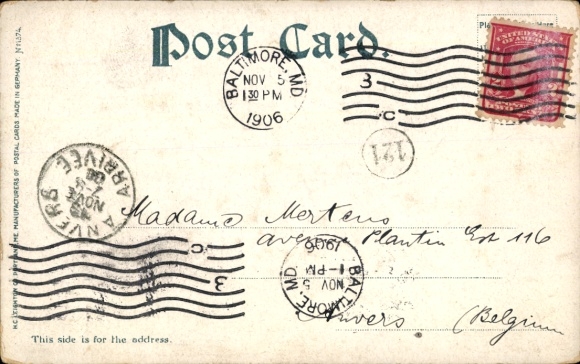 Post Card.
BALTIMORE, MD
NOV 5
1 30 PM
1906
3
C
121
ANVERS
ARRIVÉE
NOV
Madame Mertens
avenue Plantin Est 116
Anvers (Belgium
BALTIMORE, MD.
NOV 5
1-PM
1906
C
3
This side is for the address.
MANUFACTURERS OF POSTAL CARDS. MADE IN GERMANY.
UNITED STATES
OF AMERICA